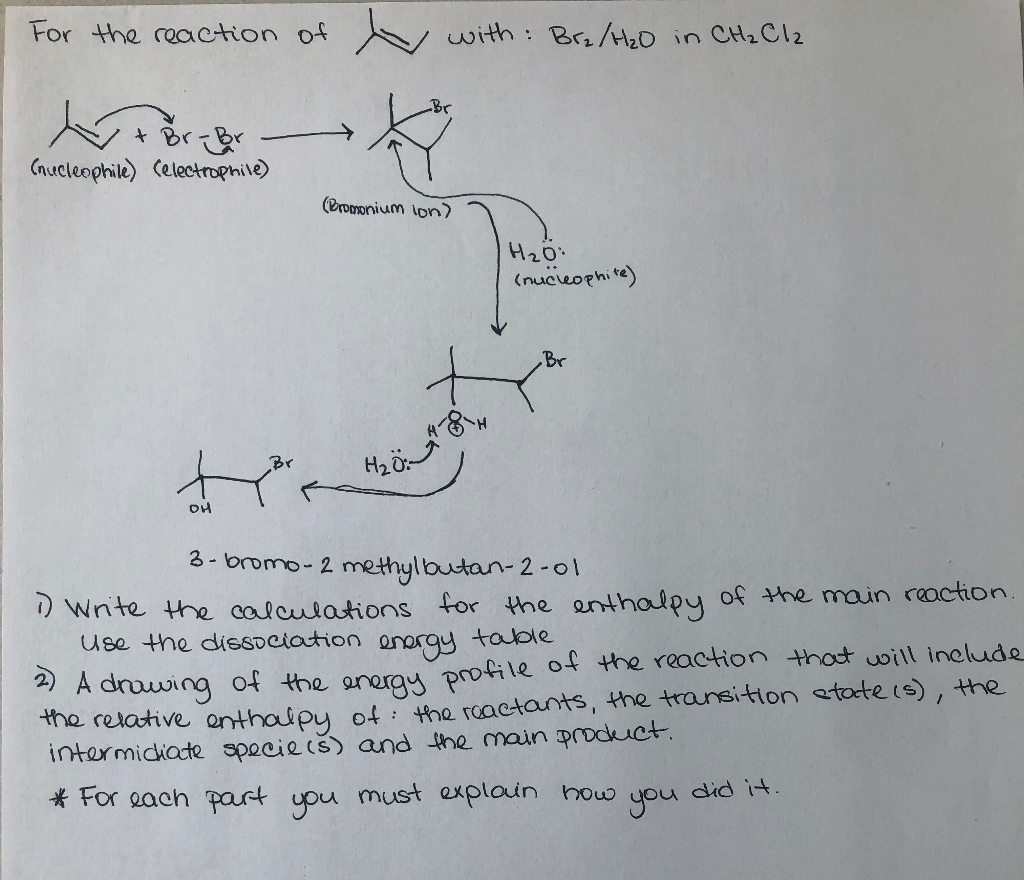 For the reaction of with : Br₂/H₂O in CH₂Cl₂
+ Br-Br
Br
(nucleophile) (electrophile)
(Bromonium ion)
H₂Ö:
(nucleophile)
Br
H O ⊕ H
H₂Ö:
Br
OH
3-bromo-2 methylbutan-2-ol
1) Write the calculations for the enthalpy of the main reaction.
Use the dissociation energy table
2) A drawing of the energy profile of the reaction that will include
the relative enthalpy of : the reactants, the transition state(s), the
intermidiate specie(s) and the main product.
* For each part you must explain how you did it.